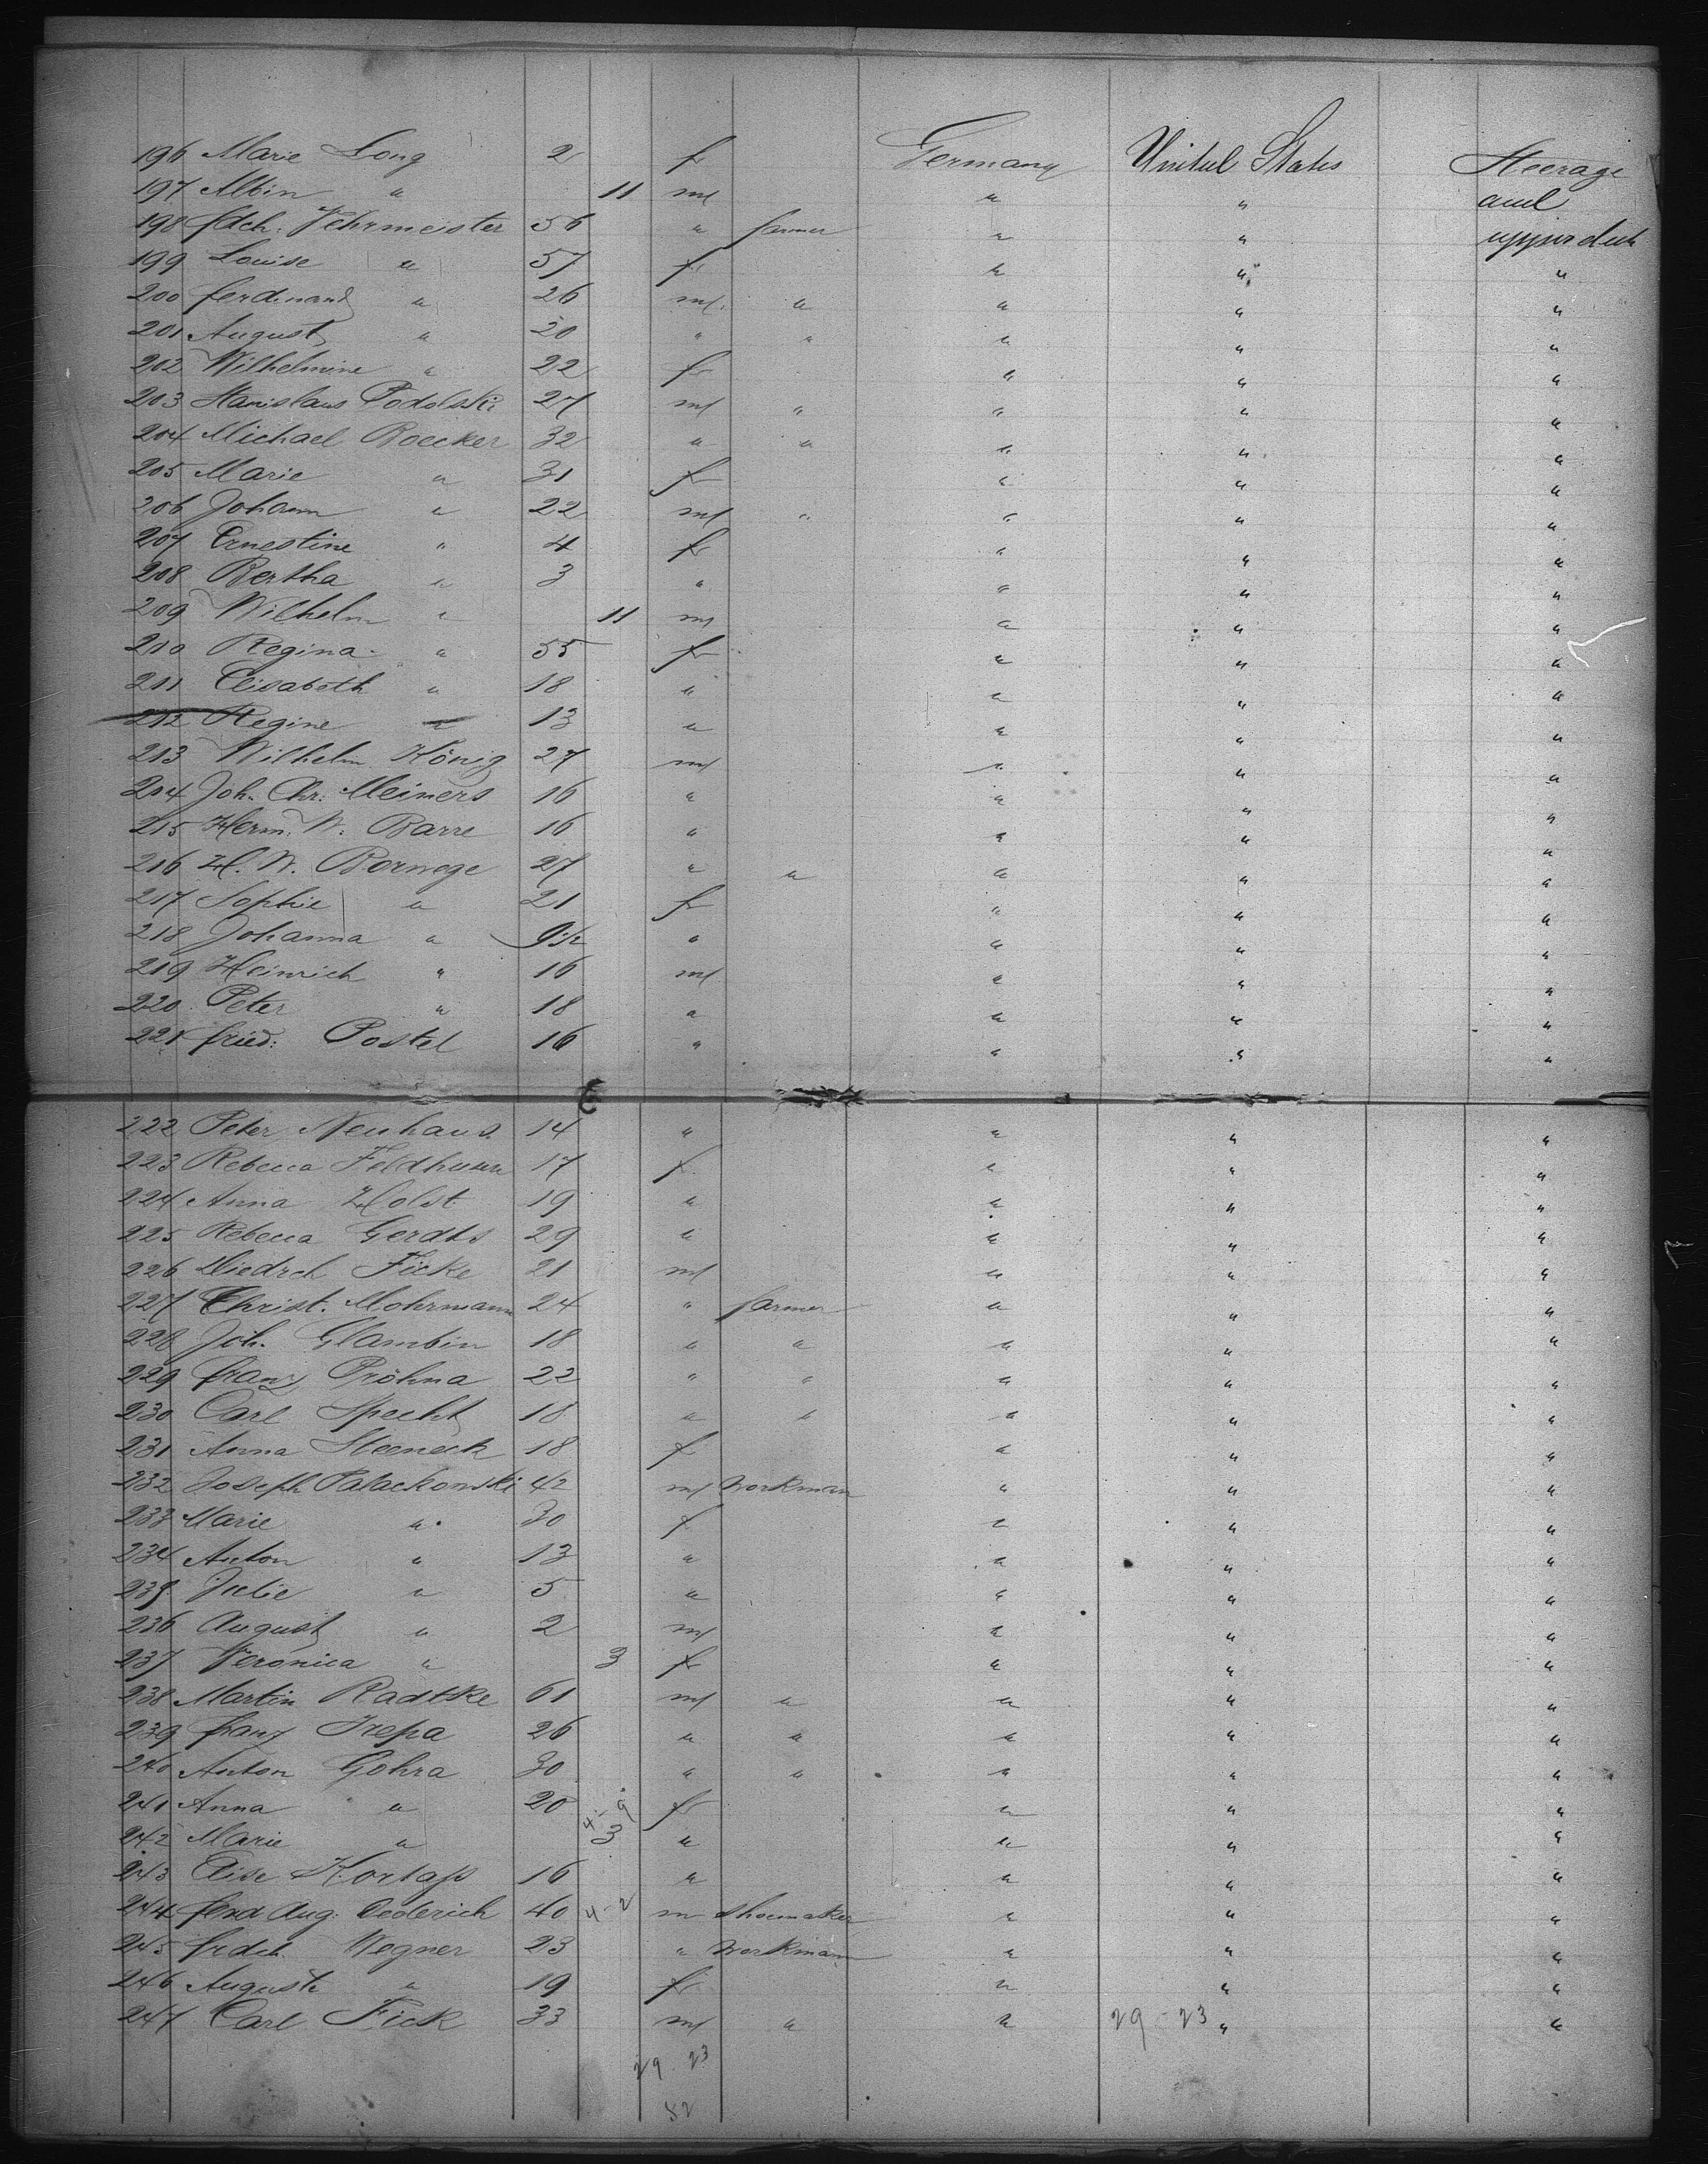 196 Marie Long 2 f Germany United States Steerage
197 Albin " 11 m " " and
198 fdch. Vehrmeister 56 " farmer " " upper deck
199 Louise " 57 f " " "
200 ferdinand " 26 m " " " "
201 August " 20 " " " " "
202 Wilhelmine " 22 f " " "
203 Stanislaus Podolski 27 m " " " "
204 Michael Boecker 32 " " " " "
205 Marie " 31 f " " "
206 Johann " 22 m " " " "
207 Ernestine " 4 f " " "
208 Bertha " 3 " " " "
209 Wilhelm " 11 m " " "
210 Regina " 55 f " " "
211 Elisabeth " 18 " " " "
212 Regine " 13 " " " "
213 Wilhelm König 27 m " " "
214 Joh. Chr. Meiners 16 " " " "
215 Herm. W. Barre 16 " " " "
216 H. W. Bornege 27 " " " " "
217 Sophie " 21 f " " "
218 Johanna " 9 1/2 " " " "
219 Heinrich " 16 m " " "
220 Peter " 18 " " " "
221 fried: Postel 16 " " " "
222 Peter Neuhaus 14 " " " "
223 Rebecca Feldhusen 17 f " " "
224 Anna Holst 19 " " " "
225 Rebecca Gerdts 29 " " " "
226 Diedrch Ficke 21 m " " "
227 Christ. Mohrmann 24 " farmer " " "
228 Joh. Glambin 18 " " " " "
229 franz Pröhna 22 " " " " "
230 Carl Specht 18 " " " " "
231 Anna Steeneck 18 f " " "
232 Joseph Palackowski 42 m workman " " "
233 Marie " 30 f " " "
234 Anton " 13 " " " "
235 Julie " 5 " " " "
236 August " 2 m " " "
237 Veronica " 3 f " " "
238 Martin Radtke 61 m " " " "
239 franz Trepa 26 " " " " "
240 Anton Gohra 30 " " " " "
241 Anna " 20 f " " "
242 Marie " 3 " " " "
243 Elise Kortass 16 " " " "
244 Aug. Oederich 40 4-2 m shoemaker " " "
245 frdch. Wegner 23 " workman " " "
246 Auguste " 19 f " " "
247 Carl Fick 33 m " " 29-23 " "
29.23
52